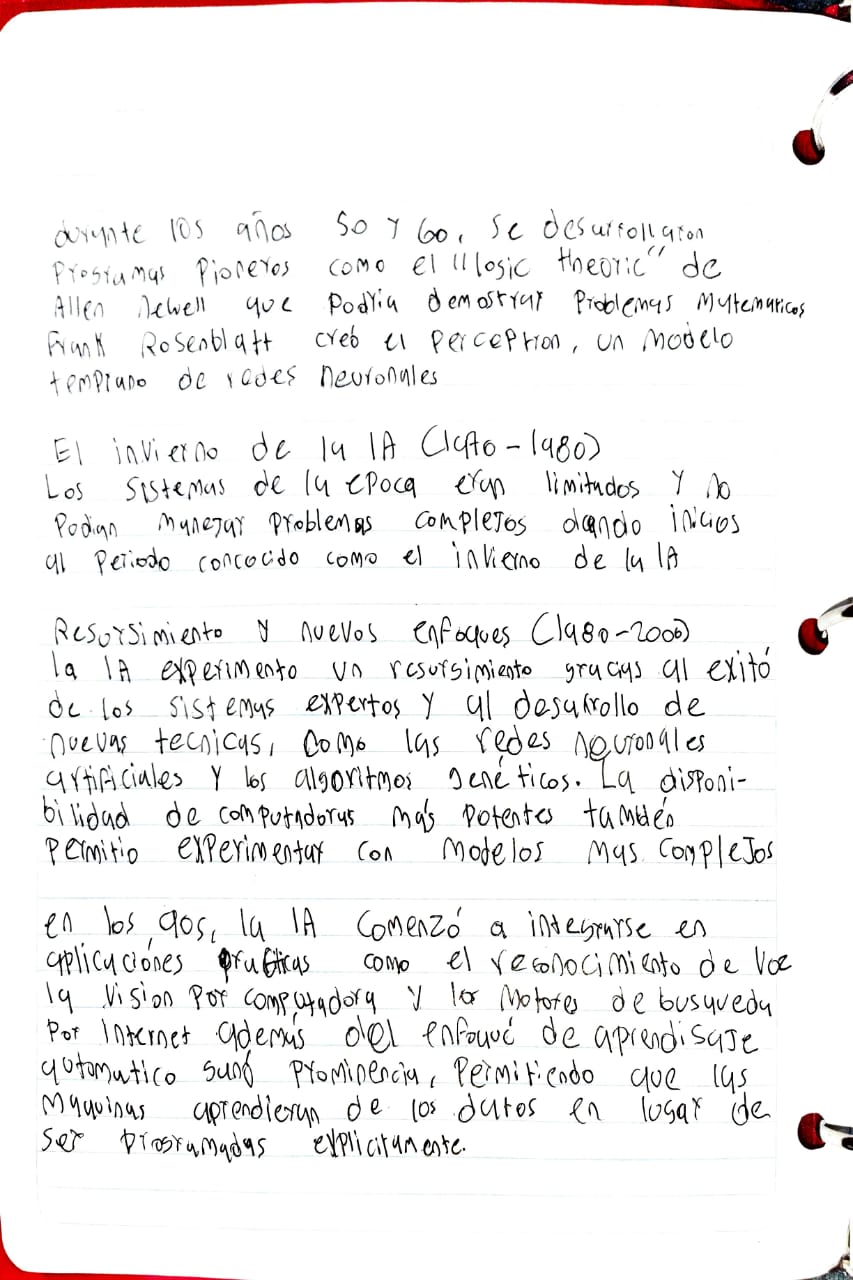 durante los años 50 y 60, se desarrollaron
Programas Pioneros como el "losic theoric" de
Allen Newell que Podria demostrar Problemas Matematicos
Frank Rosenblatt creó el Perceptron, un modelo
temprano de redes neuronales
El invierno de la IA (1970-1980)
Los sistemas de la epoca eran limitados y no
Podian manejar problemas complejos dando inicios
al Periodo concocido como el invierno de la IA
Resorsimiento y nuevos enfoques (1980-2000)
la IA experimento un resursimiento gracias al exitó
de los sistemas expertos y al desarrollo de
nuevas tecnicas, como las redes neuronales
artificiales y los algoritmos genéticos. La disponi-
bilidad de computadoras más potentes también
permitio experimentar con modelos mas complejos
en los 90s, la IA comenzó a integrarse en
aplicaciónes practicas como el reconocimiento de voz
la vision por computadora y los motores de busqueda
por internet además del enfoque de aprendisaje
automatico ganó prominencia, permitiendo que las
maquinas aprendieran de los datos en lugar de
ser programadas explicitamente.